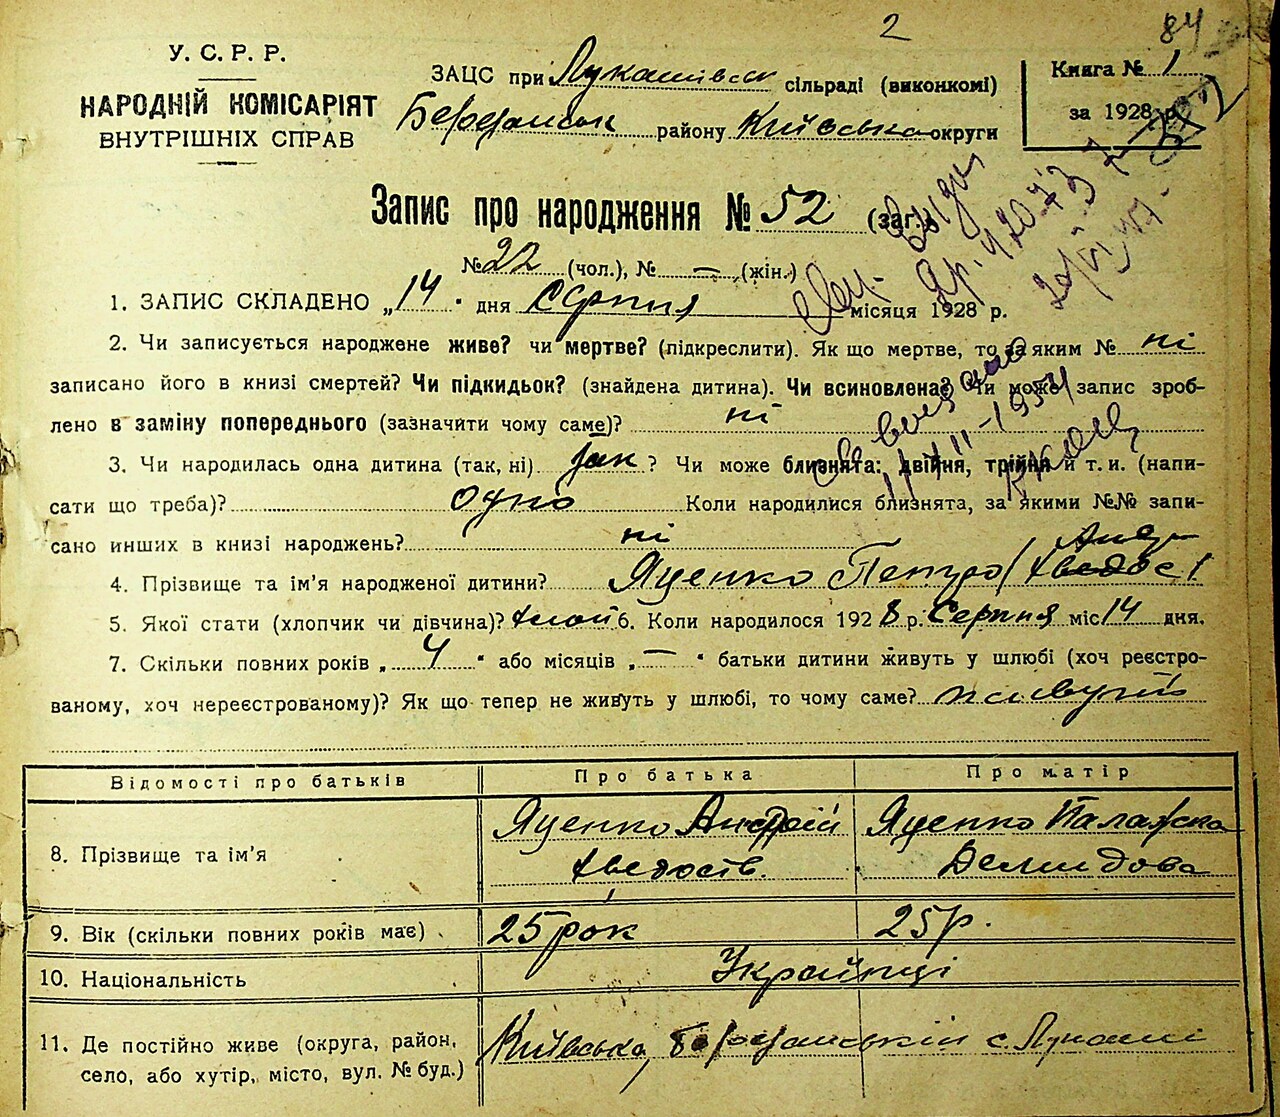 2
84
У. С. Р. Р.
НАРОДНІЙ КОМІСАРІЯТ
ВНУТРІШНІХ СПРАВ
ЗАЦС при Лукашівськ сільраді (виконкомі)
району Київська округи
Книга № 1
за 1928 р.
Запис про народження № 52 (заг.)
№ 22 (чол.), № — (жін.)
1. ЗАПИС СКЛАДЕНО „14" дня Серпня місяця 1928 р.
2. Чи записується народжене живе? чи мертве? (підкреслити). Як що мертве, то за яким № ні
записано його в книзі смертей? Чи підкидьок? (знайдена дитина). Чи всиновлена? Чи може запис зроб-
лено в заміну попереднього (зазначити чому саме)? ні
3. Чи народилась одна дитина (так, ні) так? Чи може близнята: двійня, трійня й т. и. (напи-
сати що треба)? одно Коли народилися близнята, за якими №№ запи-
сано инших в книзі народжень? ні
4. Прізвище та ім'я народженої дитини? Яценко Петро
5. Якої стати (хлопчик чи дівчина)? 6. Коли народилося 1928 р. Серпня міс 14 дня.
7. Скільки повних років „4" або місяців „—" батьки дитини живуть у шлюбі (хоч реєстро-
ваному, хоч нереєстрованому)? Як що тепер не живуть у шлюбі, то чому саме? живуть
Відомості про батьків
Про батька
Про матір
8. Прізвище та ім'я
Яценко Андрій
Яценко Палажка
Демидова
9. Вік (скільки повних років має)
25 рок
25 р.
10. Національність
Українці
11. Де постійно живе (округа, район,
село, або хутір, місто, вул. № буд.)
Київська, с. Лукаші